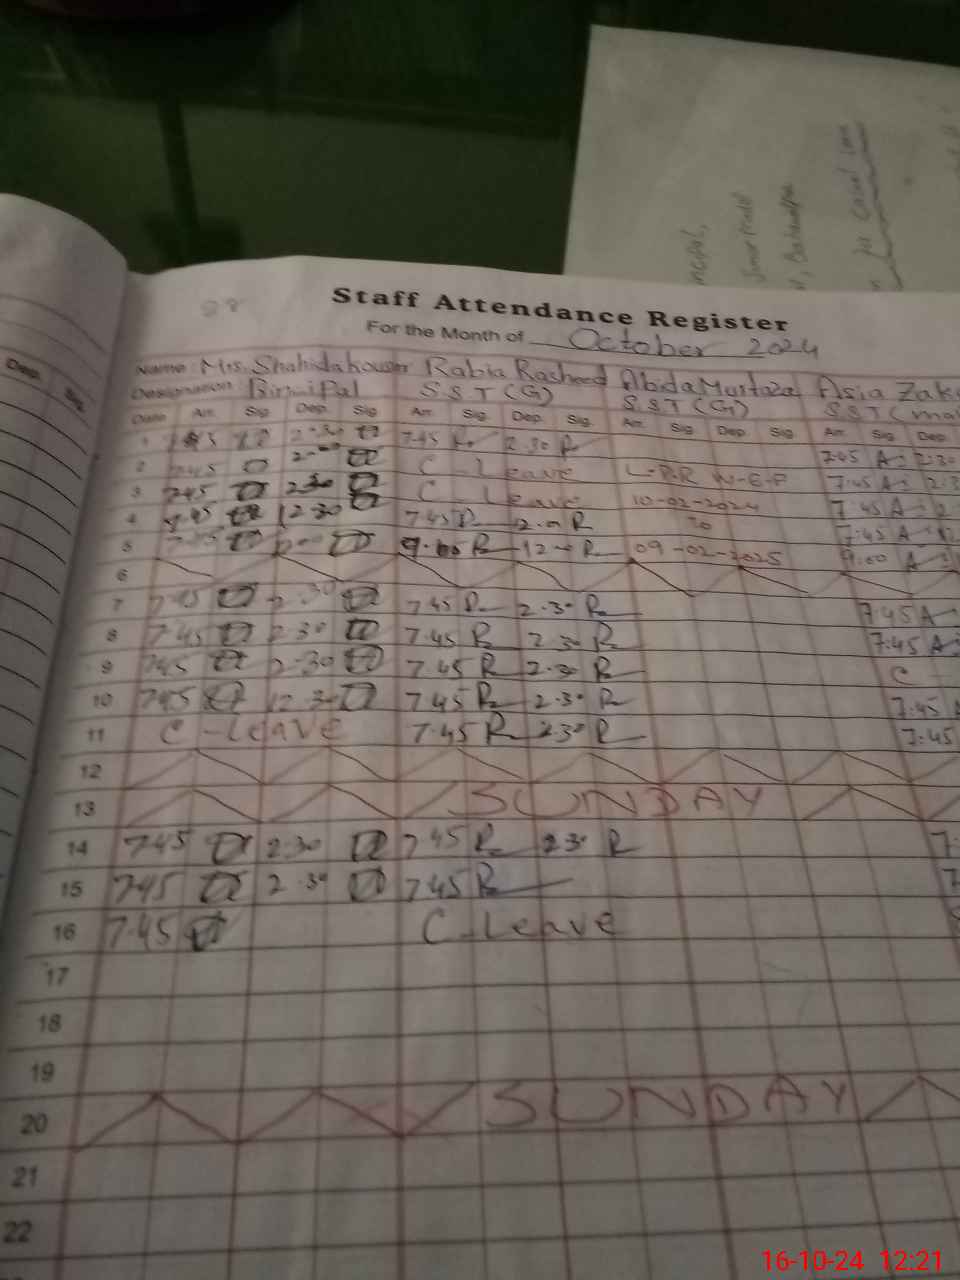 ncipal,
Bahawalpur
for casual leave
Dep. Sig.
Staff Attendance Register
For the Month of October 2024
Name Mrs. Shahida kouser Rabia Rasheed Abida Murtaza Asia Zak
Designation S.S.T (G) S.S.T (G) S.S.T (
Date Arr. Sig. Dep. Sig. Arr. Sig. Dep. Sig. Arr. Sig. Dep. Sig. Arr. Sig. Dep.
1 7.45 2.30 7.45 R 2.30 R 7.45 A 2.30
2 7.45 C - Leave L-P.R W-E-P 7.45 A 2.3
3 7.45 2.30 C - Leave 10-02-2024 7.45 A 2
4 7.45 12.30 7.45 R R To 7.45 A
5 R 12 R 09-02-2025 9.00 A
6
7 7.45 2.30 7.45 R 2.30 R 7.45 A
8 7.45 2.30 7.45 R 2.30 R 7.45 A
9 7.45 2.30 7.45 R 2.30 R C
10 7.45 2.30 7.45 R 2.30 R 7.45 A
11 C - Leave 7.45 R 2.30 R 7.45
12
13 SUNDAY
14 7.45 2.30 7.45 R 2.30 R 7.
15 7.45 2.30 7.45 R 7
16 7.45 C - Leave
17
18
19
20 SUNDAY
21
22
16-10-24 12:21